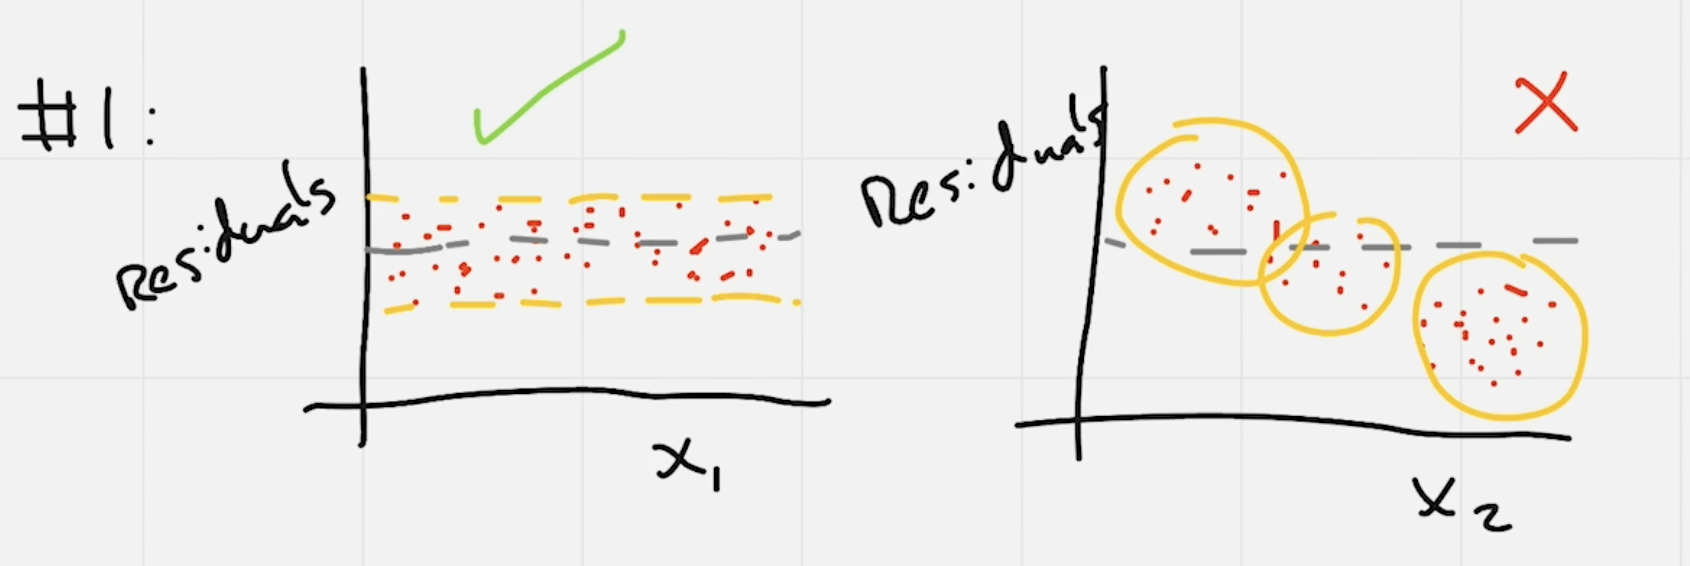 #1:
Residuals
x₁
Residuals
x₂